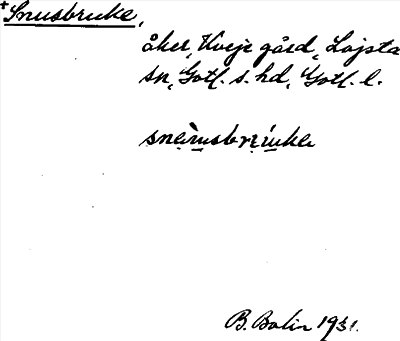 +Snusbruke,
åker, Kveje gård, Lojsta
sn, Gotl. s. hd, Gotl. l.
B. Bolin 1931.